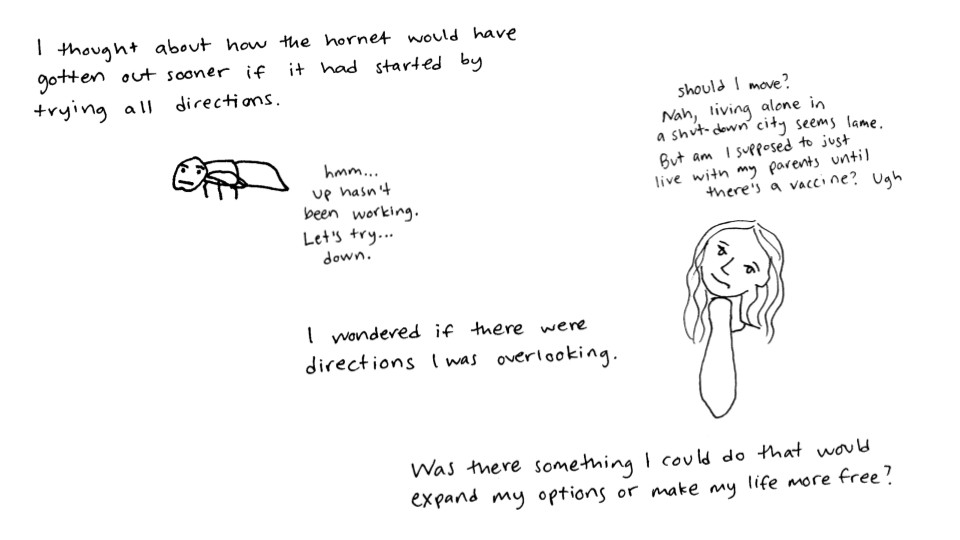 I thought about how the hornet would have
gotten out sooner if it had started by
trying all directions.
hmm...
up hasn't
been working.
Let's try...
down.
should I move?
Nah, living alone in
a shut-down city seems lame.
But am I supposed to just
live with my parents until
there's a vaccine? Ugh
I wondered if there were
directions I was overlooking.
Was there something I could do that would
expand my options or make my life more free?